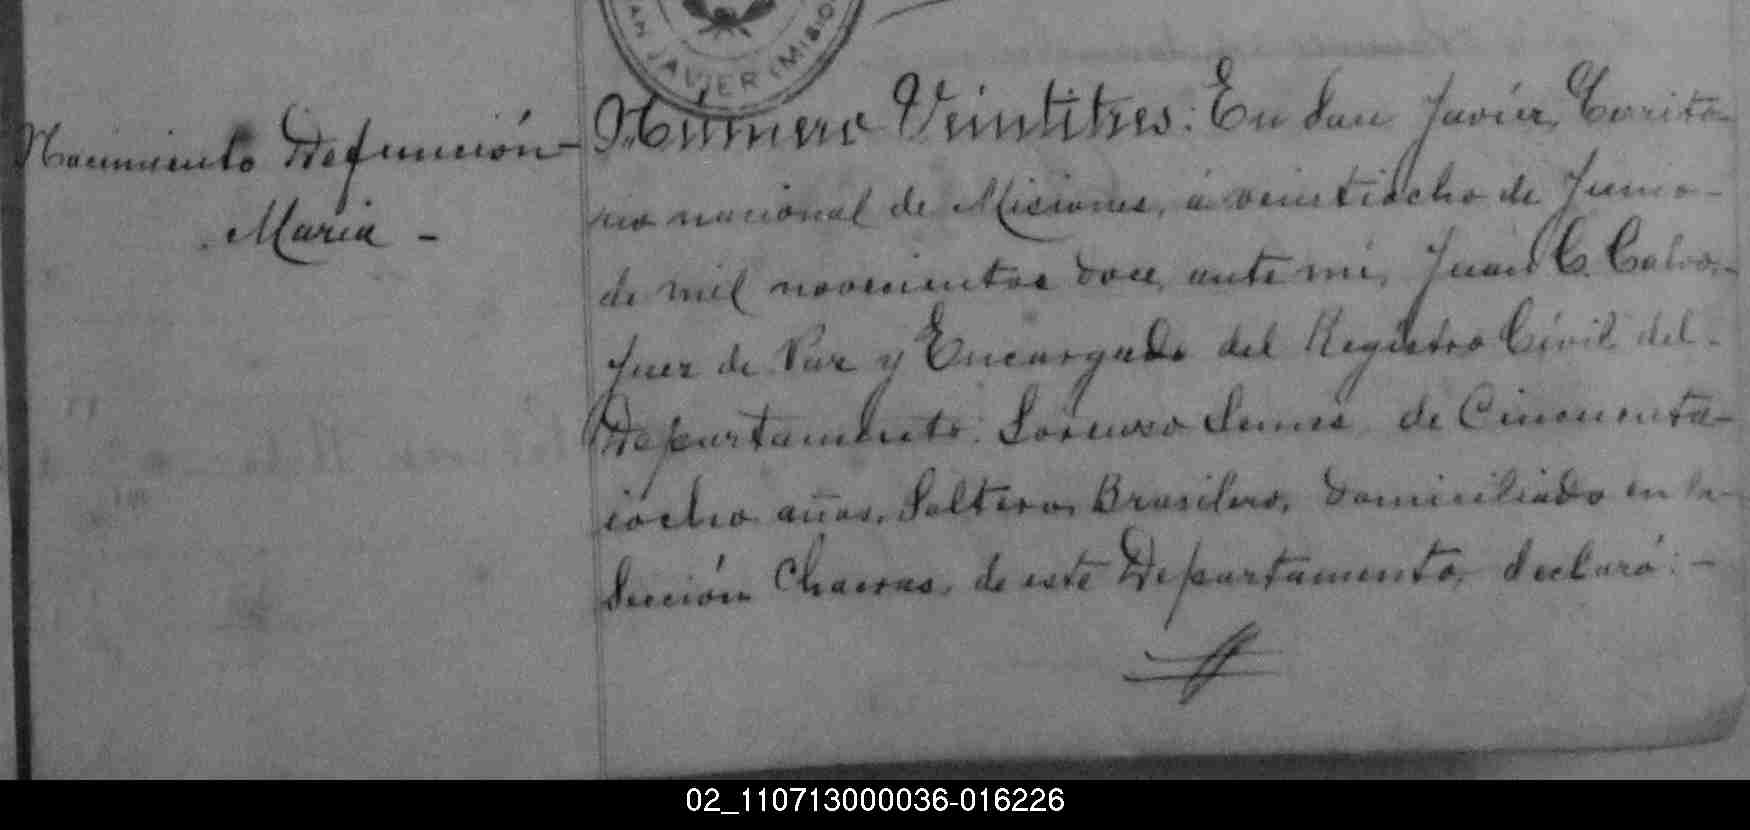 AN JAVIER (MISIO
Nacimiento Defunción-
Maria -
Número Veintitres: En San Javier, Territo-
rio nacional de Misiones, á veintiocho de Junio-
de mil novecientos doce, ante mí, Juan C. Calvo,-
Juez de Paz y Encargado del Registro Civil del-
Departamento: Lorenzo Lemes de Cincuenta-
iocho años, Soltero, Brasilero, domiciliado en la-
Sección Chacras, de este Departamento, declaró: -
02_110713000036-016226